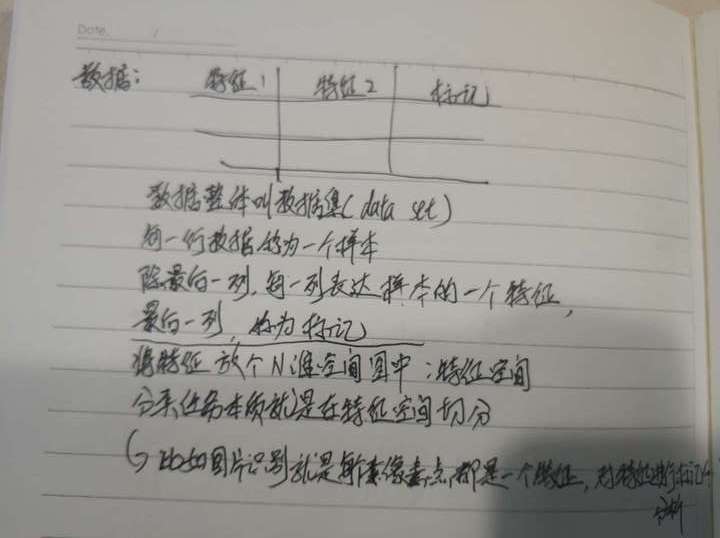 Date. /
数据: 特征1 特征2 标记
数据整体叫数据集(data set)
每一行数据称为一个样本
除最后一列,每一列表达样本的一个特征,
最后一列,称为标记
将特征放个N维空间图中:特征空间
分类任务本质就是在特征空间切分
比如图片识别就是每个像素点都是一个特征,对特征进行标记
分析